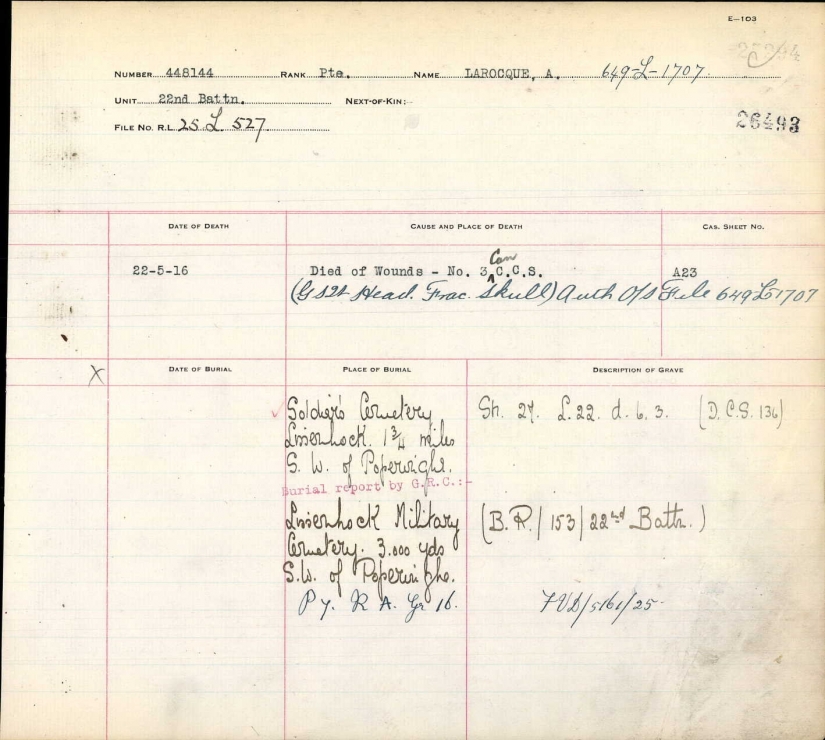 E—103
NUMBER 448144 RANK Pte. NAME LAROCQUE, A. 649-L-1707
UNIT 22nd Battn. NEXT-OF-KIN:
FILE NO. R.L. 25 L. 527
26493
DATE OF DEATH CAUSE AND PLACE OF DEATH CAS. SHEET NO.
Can
22-5-16 Died of Wounds - No. 3 C.C.S. A23
Head. Frac. Skull) Auth O/S File 649L1707
X DATE OF BURIAL PLACE OF BURIAL DESCRIPTION OF GRAVE
Soldier's Cemetery Sh. 27. L.22. d. 6. 3. (D.C.S. 136)
Lissenhock. 1 3/4 miles
S. W. of Poperinghe.
Burial report by G.R.C.:-
Lissenhock Military (B.R./153/22nd Battn.)
Cemetery. 3.000 yds
S.W. of Poperinghe.
R A. Gr 16.